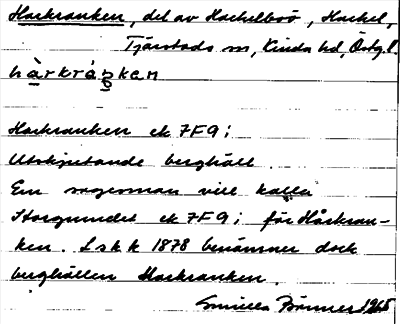 Harkranken, del av Hackelboö, Hackel,
Tjärstads sn, Kinda hd, Östg.l.
hàrkráŋkan
Harkranken ek 7F9i
Utskjutande berghäll.
En sagesman vill kalla
Storgrundet ek 7F9i för Hårkran-
ken. Lskk 1878 benämner dock
berghällen Harkranken.
Gunilla 1965